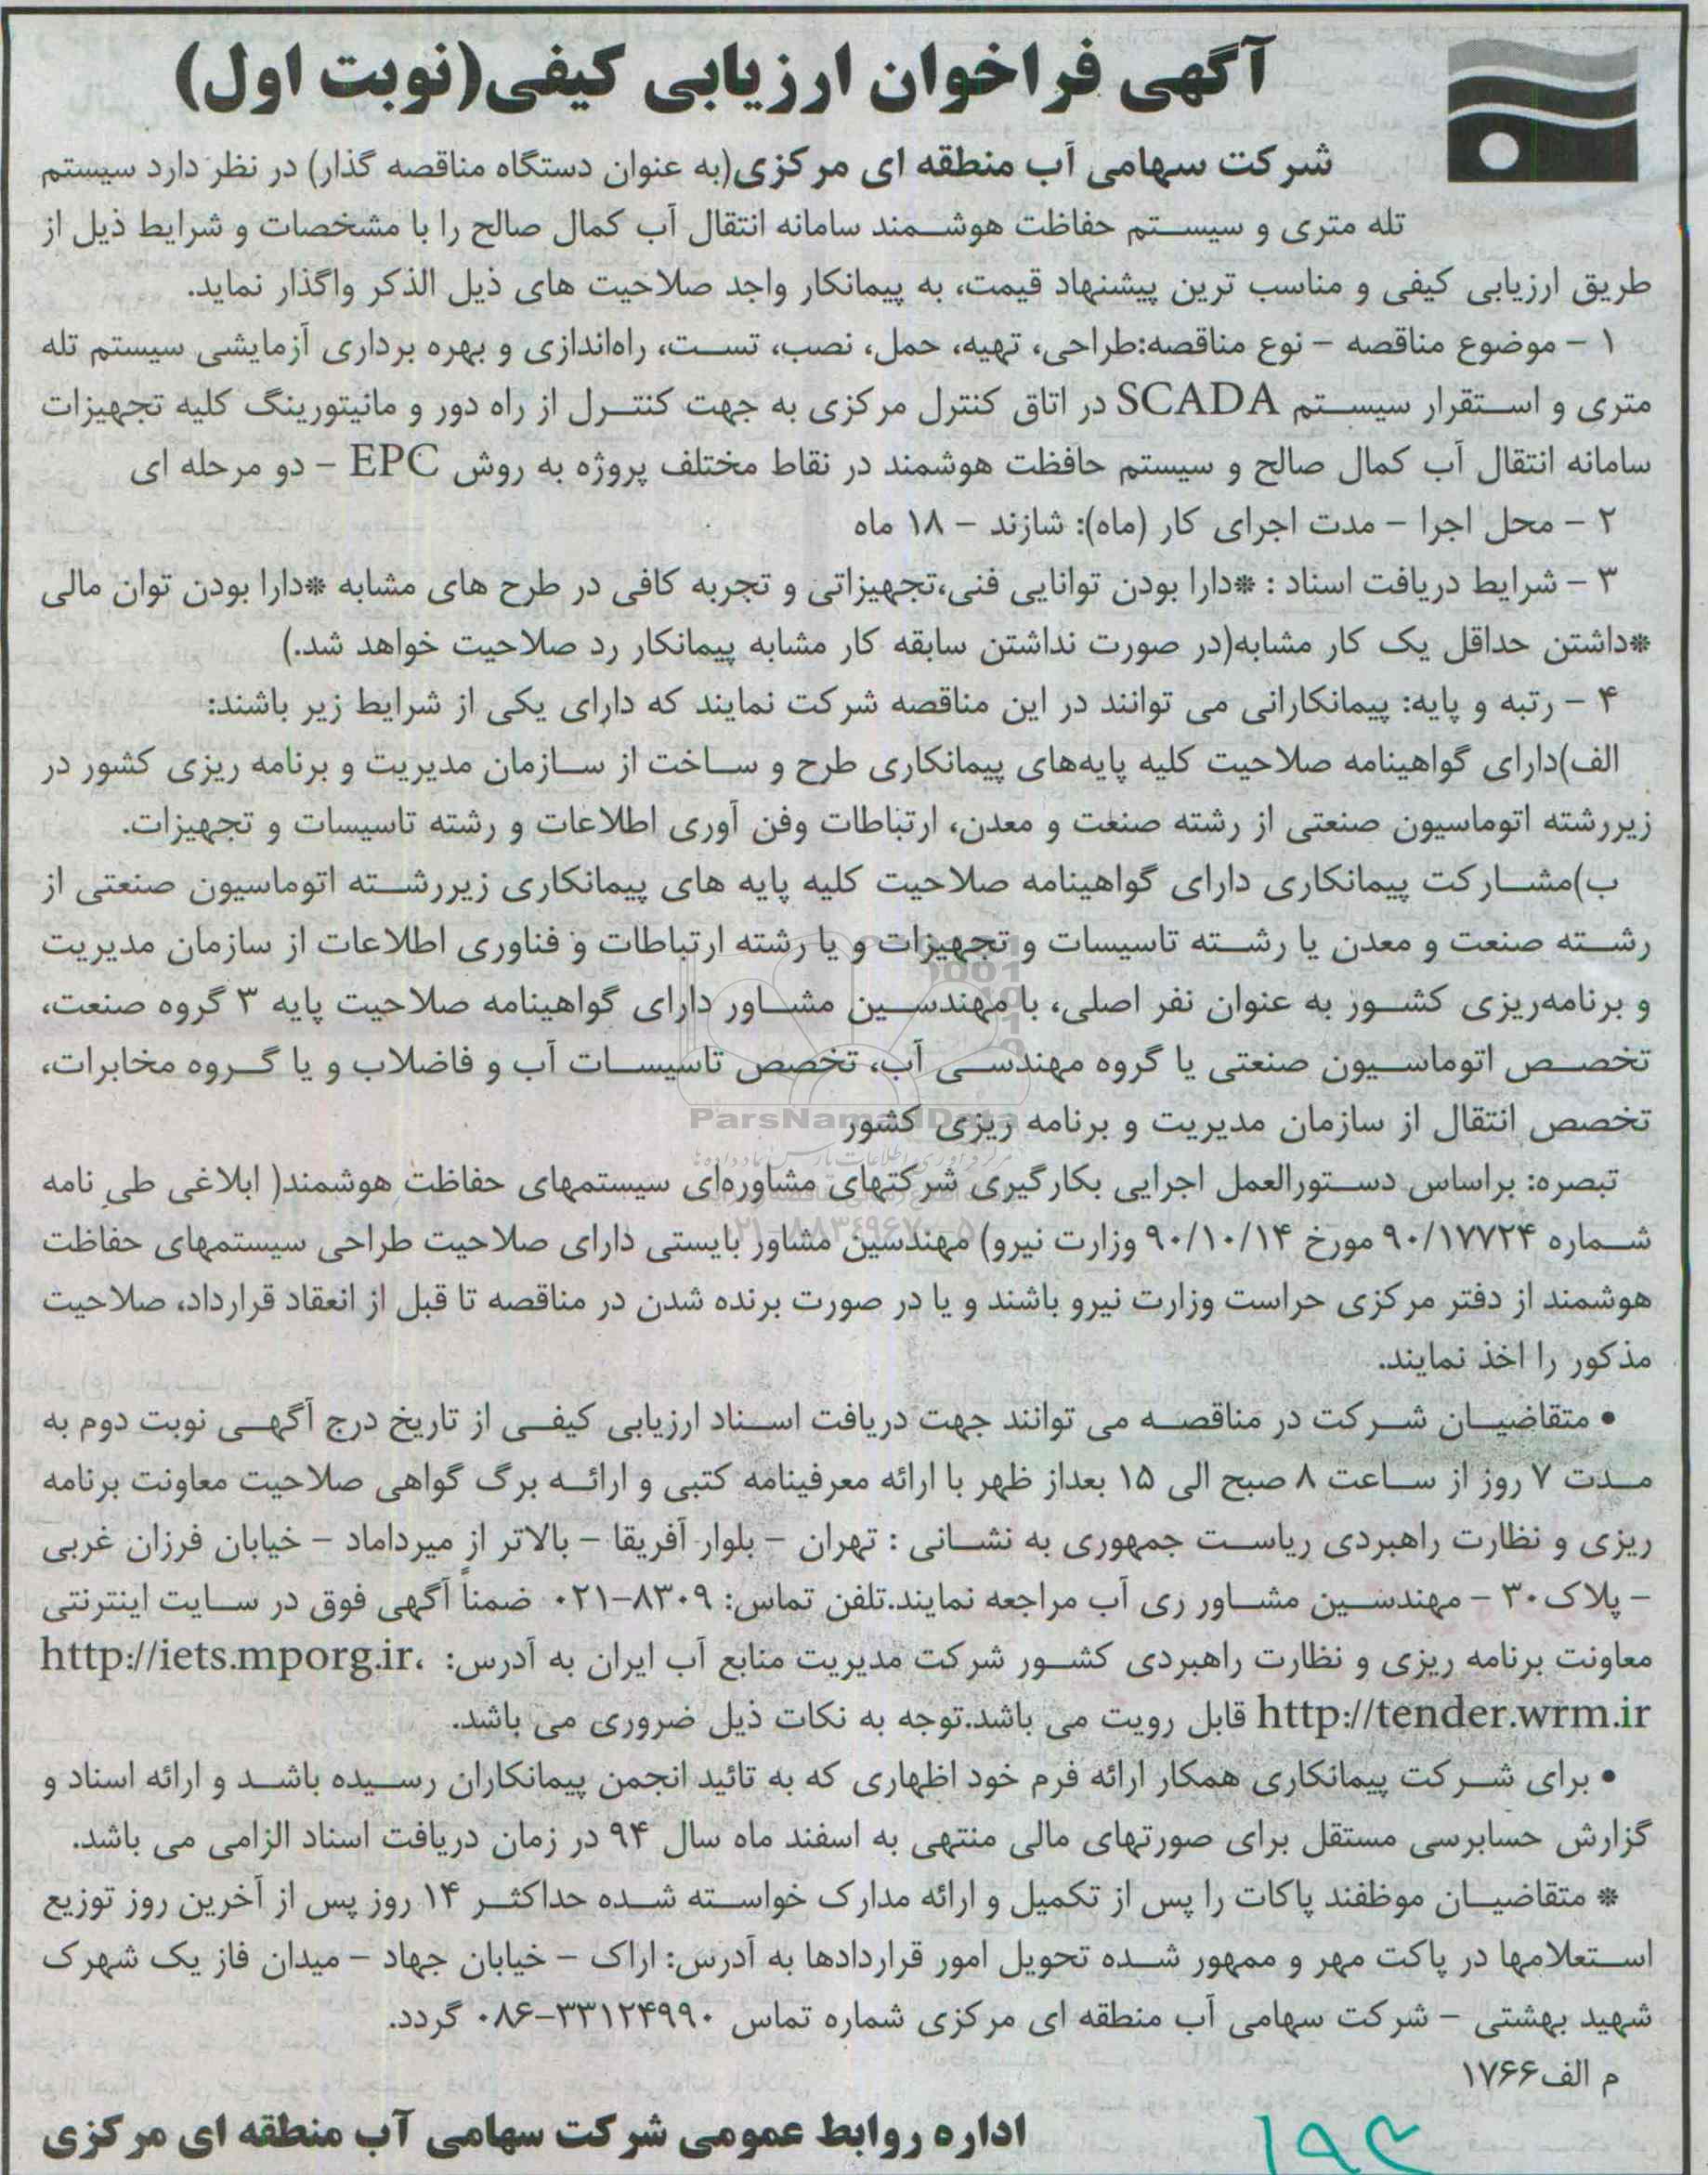 آگهی فراخوان ارزیابی کیفی(نوبت اول)
شرکت سهامی آب منطقه ای مرکزی(به عنوان دستگاه مناقصه گذار) در نظر دارد سیستم
تله متری و سیستم حفاظت هوشمند سامانه انتقال آب کمال صالح را با مشخصات و شرایط ذیل از
طریق ارزیابی کیفی و مناسب ترین پیشنهاد قیمت، به پیمانکار واجد صلاحیت های ذیل الذکر واگذار نماید.
۱ – موضوع مناقصه – نوع مناقصه:طراحی، تهیه، حمل، نصب، تست، راه‌اندازی و بهره برداری آزمایشی سیستم تله
متری و استقرار سیستم SCADA در اتاق کنترل مرکزی به جهت کنترل از راه دور و مانیتورینگ کلیه تجهیزات
سامانه انتقال آب کمال صالح و سیستم حافظت هوشمند در نقاط مختلف پروژه به روش EPC – دو مرحله ای
۲ – محل اجرا – مدت اجرای کار (ماه): شازند – ۱۸ ماه
۳ – شرایط دریافت اسناد : *دارا بودن توانایی فنی،تجهیزاتی و تجربه کافی در طرح های مشابه *دارا بودن توان مالی
*داشتن حداقل یک کار مشابه(در صورت نداشتن سابقه کار مشابه پیمانکار رد صلاحیت خواهد شد.)
۴ – رتبه و پایه: پیمانکارانی می توانند در این مناقصه شرکت نمایند که دارای یکی از شرایط زیر باشند:
الف)دارای گواهینامه صلاحیت کلیه پایه‌های پیمانکاری طرح و ساخت از سازمان مدیریت و برنامه ریزی کشور در
زیررشته اتوماسیون صنعتی از رشته صنعت و معدن، ارتباطات وفن آوری اطلاعات و رشته تاسیسات و تجهیزات.
ب)مشارکت پیمانکاری دارای گواهینامه صلاحیت کلیه پایه های پیمانکاری زیررشته اتوماسیون صنعتی از
رشته صنعت و معدن یا رشته تاسیسات و تجهیزات و یا رشته ارتباطات و فناوری اطلاعات از سازمان مدیریت
و برنامه‌ریزی کشور به عنوان نفر اصلی، با مهندسین مشاور دارای گواهینامه صلاحیت پایه ۳ گروه صنعت،
تخصص اتوماسیون صنعتی یا گروه مهندسی آب، تخصص تاسیسات آب و فاضلاب و یا گروه مخابرات،
تخصص انتقال از سازمان مدیریت و برنامه ریزی کشور
ParsNamadData
تبصره: براساس دستورالعمل اجرایی بکارگیری شرکتهای مشاوره‌ای سیستمهای حفاظت هوشمند( ابلاغی طی نامه
شماره ۹۰/۱۷۷۲۴ مورخ ۹۰/۱۰/۱۴ وزارت نیرو) مهندسین مشاور بایستی دارای صلاحیت طراحی سیستمهای حفاظت
هوشمند از دفتر مرکزی حراست وزارت نیرو باشند و یا در صورت برنده شدن در مناقصه تا قبل از انعقاد قرارداد، صلاحیت
مذکور را اخذ نمایند.
• متقاضیان شرکت در مناقصه می توانند جهت دریافت اسناد ارزیابی کیفی از تاریخ درج آگهی نوبت دوم به
مدت ۷ روز از ساعت ۸ صبح الی ۱۵ بعداز ظهر با ارائه معرفینامه کتبی و ارائه برگ گواهی صلاحیت معاونت برنامه
ریزی و نظارت راهبردی ریاست جمهوری به نشانی : تهران – بلوار آفریقا – بالاتر از میرداماد – خیابان فرزان غربی
– پلاک۳۰ – مهندسین مشاور ری آب مراجعه نمایند.تلفن تماس: ۸۳۰۹–۰۲۱ ضمناً آگهی فوق در سایت اینترنتی
معاونت برنامه ریزی و نظارت راهبردی کشور شرکت مدیریت منابع آب ایران به آدرس: http://iets.mporg.ir،
http://tender.wrm.ir قابل رویت می باشد.توجه به نکات ذیل ضروری می باشد.
• برای شرکت پیمانکاری همکار ارائه فرم خود اظهاری که به تائید انجمن پیمانکاران رسیده باشد و ارائه اسناد و
گزارش حسابرسی مستقل برای صورتهای مالی منتهی به اسفند ماه سال ۹۴ در زمان دریافت اسناد الزامی می باشد.
* متقاضیان موظفند پاکات را پس از تکمیل و ارائه مدارک خواسته شده حداکثر ۱۴ روز پس از آخرین روز توزیع
استعلامها در پاکت مهر و ممهور شده تحویل امور قراردادها به آدرس: اراک – خیابان جهاد – میدان فاز یک شهرک
شهید بهشتی – شرکت سهامی آب منطقه ای مرکزی شماره تماس ۳۳۱۲۴۹۹۰–۰۸۶ گردد.
م الف۱۷۶۶
اداره روابط عمومی شرکت سهامی آب منطقه ای مرکزی